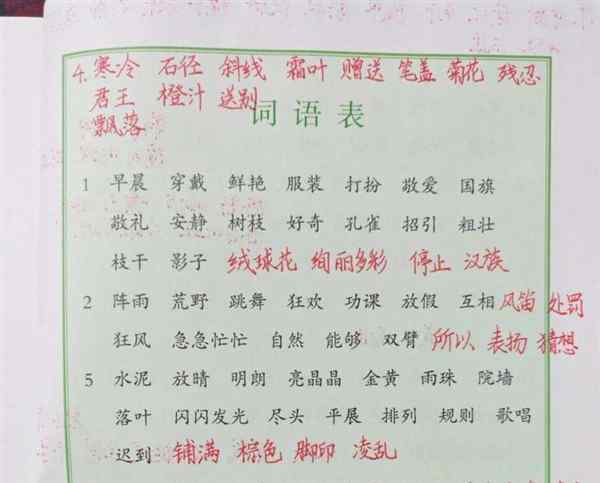 4. 寒冷 石径 斜线 霜叶 赠送 笔盖 菊花 残忍
君王 橙汁 送别
飘落
词语表
1 早晨 穿戴 鲜艳 服装 打扮 敬爱 国旗
敬礼 安静 树枝 好奇 孔雀 招引 粗壮
枝干 影子 绒球花 绚丽多彩 停止 汉族
2 阵雨 荒野 跳舞 狂欢 功课 放假 互相 风笛 处罚
狂风 急急忙忙 自然 能够 双臂 所以 表扬 猜想
5 水泥 放晴 明朗 亮晶晶 金黄 雨珠 院墙
落叶 闪闪发光 尽头 平展 排列 规则 歌唱
迟到 铺满 棕色 脚印 凌乱